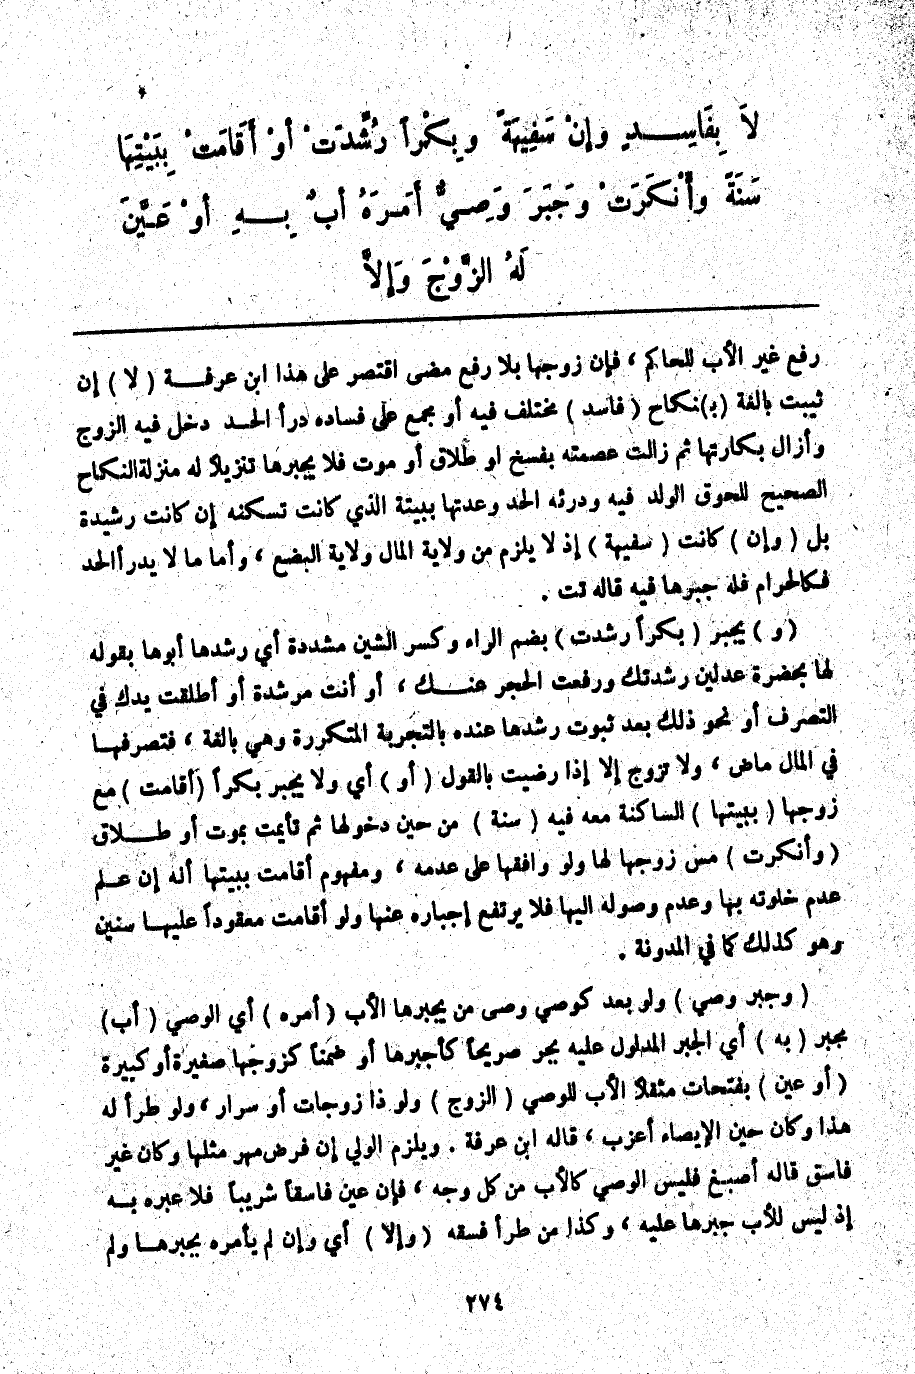 لاَ بِفَاسِـــدٍ وإنْ سَفِيهَةً وبِكْراً رُشِّدَتْ أوْ أَقَامَتْ بِبَيْتِهَا
سَنَةً وأَنْكَرَتْ وَجَبَرَ وَصِيٌّ أمَرَهُ أبٌ بِـــهِ أوْ عَيَّنَ
لَهُ الزَّوْجَ وَإلاَّ
رفع غير الأب للحاكم ، فإن زوجها بلا رفع مضى اقتصر على هذا ابن عرفـــة ( لا ) إن
ثيبت بالغة (بـ)نكاح ( فاسد ) مختلف فيه أو مجمع على فساده درأ الحـد دخل فيه الزوج
وأزال بكارتها ثم زالت عصمته بفسخ او طلاق أو موت فلا يجبرها تنزيلاً له منزلةالنكاح
الصحيح للحوق الولد فيه ودرئه الحد وعدتها ببيتة الذي كانت تسكنه إن كانت رشيدة
بل ( وإن ) كانت ( سفيهة ) إذ لا يلزم من ولاية المال ولاية البضع ، وأما ما لا يدرأالحد
فكالحرام فله جبرها فيه قاله تت .
( و ) يجبر ( بكراً رشدت ) بضم الراء وكسر الشين مشددة أي رشدها أبوها بقوله
لها بحضرة عدلين رشدتك ورفعت الحجر عنــك ، أو أنت مرشدة أو أطلقت يدك في
التصرف أو نحو ذلك بعد ثبوت رشدها عنده بالتجربة المتكررة وهي بالغة ، فتصرفهـا
في المال ماض ، ولا تزوج إلا إذا رضيت بالقول ( أو ) أي ولا يجبر بكراً (أقامت ) مع
زوجها ( ببيتها ) الساكنة معه فيه ( سنة ) من حين دخولها ثم تأيمت بموت أو طـــلاق
( وأنكرت ) مس زوجها لها ولو وافقها على عدمه ، ومفهوم أقامت ببيتها أنه إن عـلم
عدم خلوته بها وعدم وصوله اليها فلا يرتفع إجباره عنها ولو أقامت معقوداً عليهـا سنين
وهو كذلك كما في المدونة .
( وجبر وصي ) ولو بعد كوصي وصى من يجبرها الأب ( أمره ) أي الوصي ( أب)
مجبر ( به ) أي الجبر المدلول عليه بجر صريحاً كأجبرها أو ضمناً كزوجها صغيرةأو كبيرة
( أو عين ) بفتحات مثقلاً الأب للوصي ( الزوج ) ولو ذا زوجات أو سرار ، ولو طرأ له
هذا وكان حين الإيصاء أعزب ، قاله ابن عرفة . ويلزم الولي إن فرض‌مهر مثلها وكان غير
فاسق قاله أصبـغ فليس الوصي كالأب من كل وجه ، فإن عين فاسقاً شريباً فلا عبره بـه
إذ ليس للأب جبرها عليه ، وكذا من طرأ فسقه ( وإلا ) أي وإن لم يأمره بجبرهـا ولم
٢٧٤